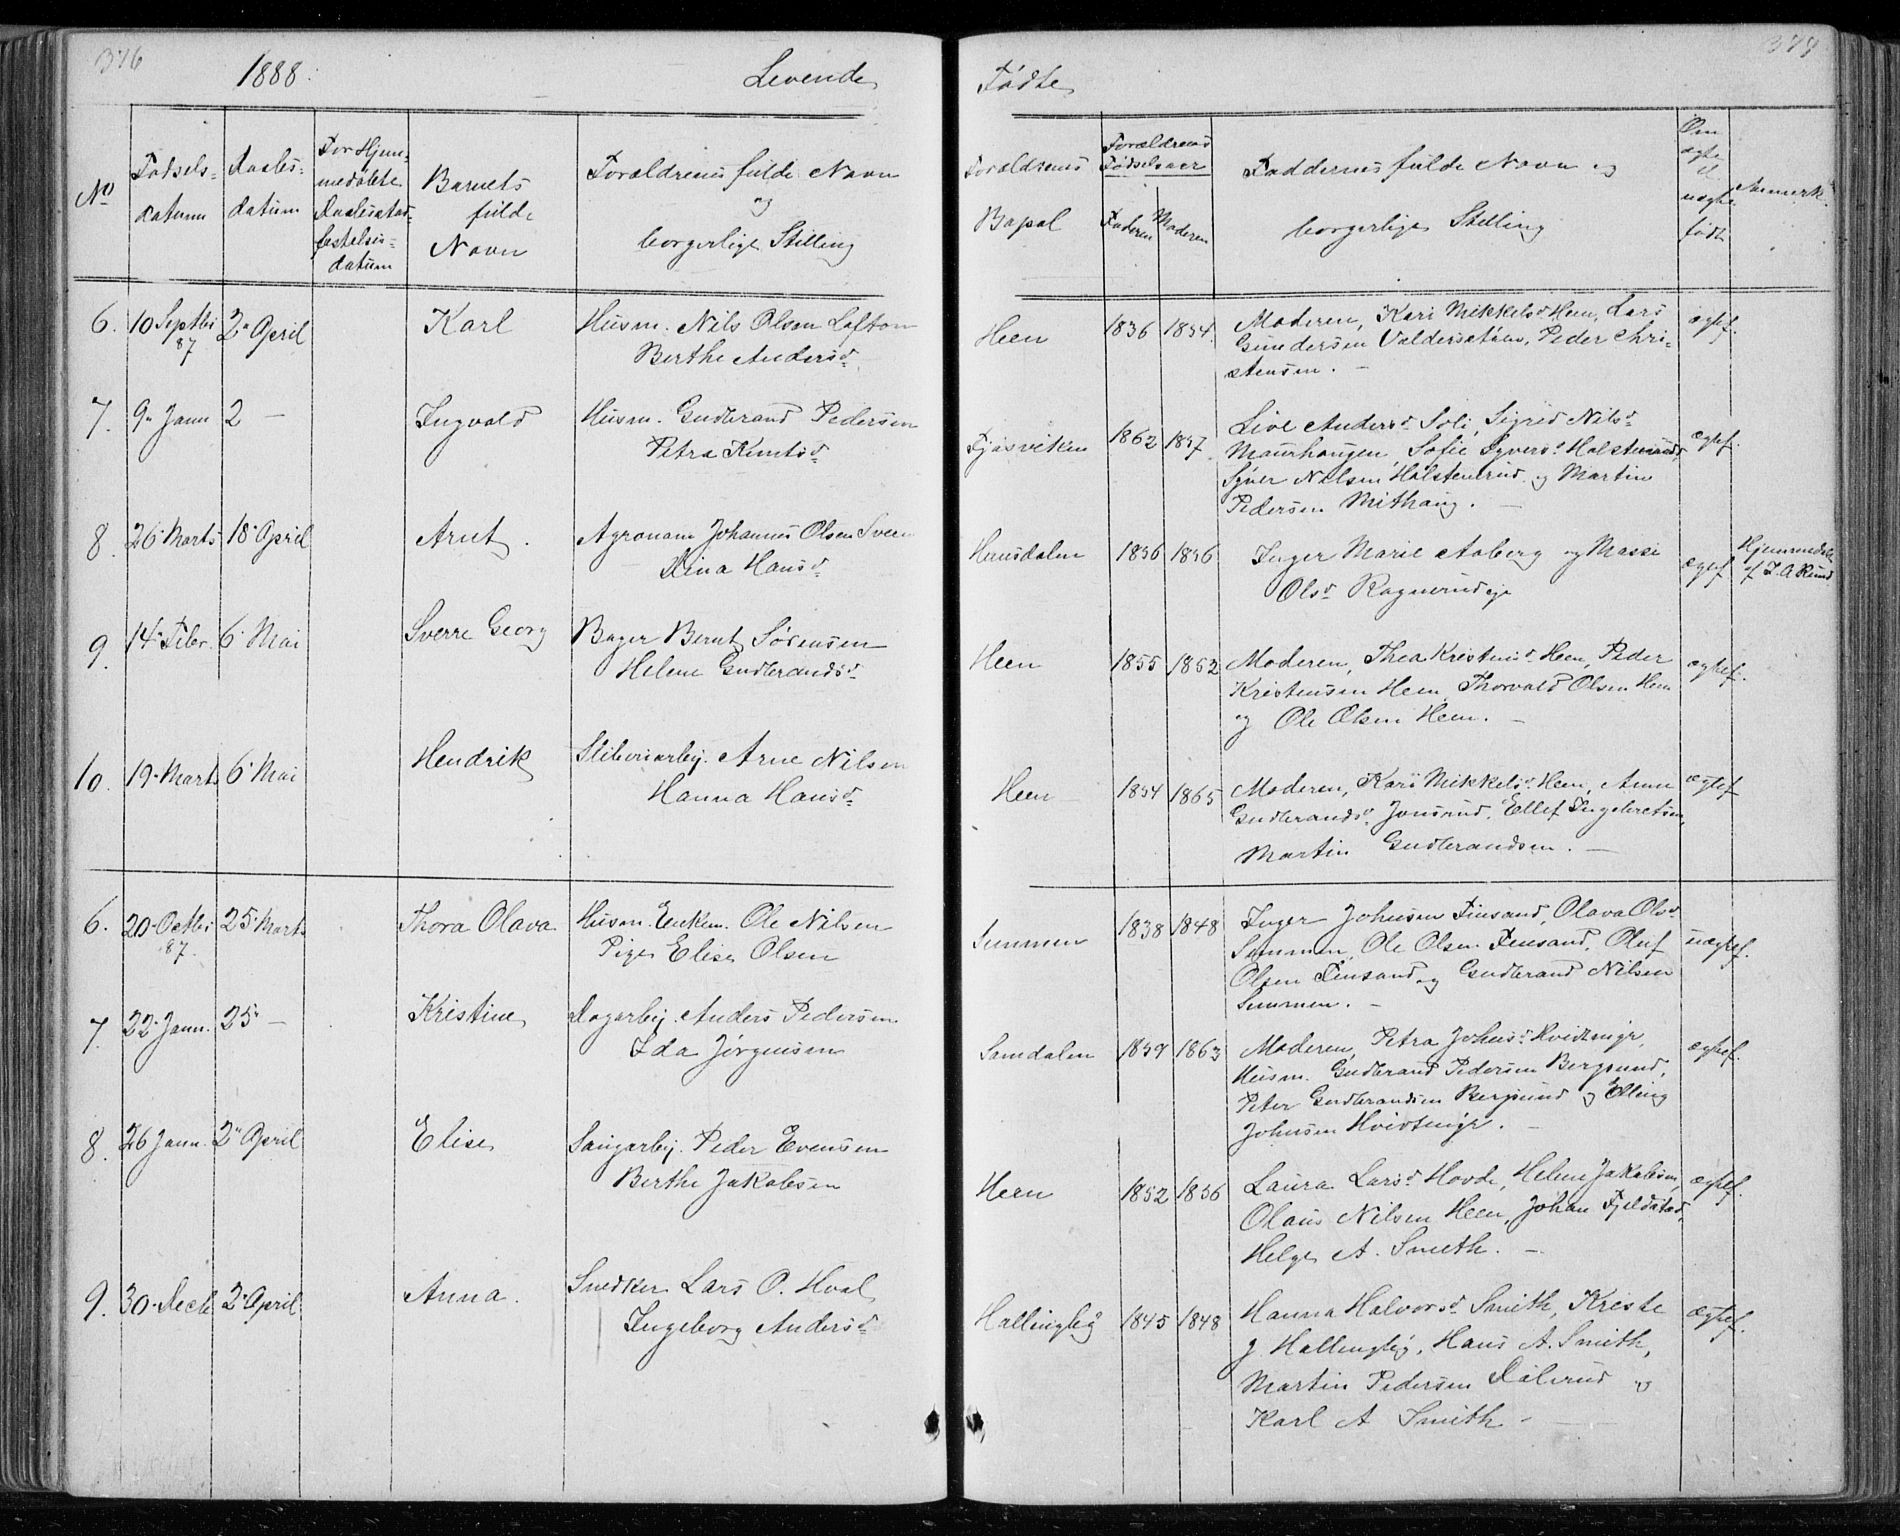 376
1888.
Levende
No
Fødsels-
datum
Daabs-
datum
For Hjem-
medøbte
Daabsstad-
festelses-
datum
Barnets
fulde
Navn
Forældrenes fulde Navn
og
borgerlige Stilling
6. 10 Septbr 87 2. April Karl Husm. Nils Olsen
Berthe Andersd.
7. 9. Janr 2 — Ingvald Husm. Gudbrand Pedersen
Petra Knutsd.
8. 26. Marts 18. April Arnt. Agronom Johannes Olsen Sveen
Dina Hansd.
9. 14. Febr. 6. Mai Sverre Georg Bager Bernt Sørensen
Helene Gudbrandsd.
10. 19. Marts 6. Mai Hendrik Sliberiarbej. Arne Nilsen
Hanna Hansd.
6. 20. Octbr 87. 25. Marts Thora Olava Husm. Enkem. Ole Nilsen
Pige Elise Olsen
7. 22. Janr. 25. — Kristine Dagarbej. Anders Pedersen
Ida Jørgensen
8. 26 Janr. 2. April Elise Saugarbej. Peder Evensen
Berthe Jakobsen
9. 30. Decb 2. April Anna. Snedker Lars O. Hval
Ingeborg Andersd.
377
Fødte
Forældrenes
Bopæl
Forældrenes
Fødselsaar
Faderen Moderen
Faddernes fulde Navn og
borgerlige Stilling
Om
ægte
el.
uægte
født
Anmærk.
Heen 1836 1834. Moderen, Kari Mikkelsd. Heen, Lars ægtef.
Gundersen Valdersætren, Peder Chri-
stensen. —
Fjøsviken 1862 1857. Live Andersd. Soli, Sigrid Nilsd. ægtef.
Maurhaugen, Sofie Syversd. Holstenrud,
Syver Nilsen Holstenrud og Martin
Pedersen Mithaug. —
Hensdalen 1856 1856 Inger Marie Aaberg og Massi ægtef.
Olsd. Ragnerudeje
Hjemmedøbt
af
Heen 1855 1862 Moderen, Thea Kristensd. Heen, Peder ægtef.
Kristensen Heen, Thorvald Olsen Heen
og Ole Olsen Heen. —
Heen 1854 1865 Moderen, Kari Mikkelsd. Heen, Anne ægtef
Gudbrandsd. Jonsrud, Ellef Ingebretsen,
Martin Gudbrandsen. —
Semmen 1838 1848 Inger Johnsen Finsand, Olava Olsd. uægtef.
Semmen, Ole Olsen Finsand, Oluf
Olsen Finsand og Gudbrand Nilsen
Semmen. —
Samdalen 1859 1863 Moderen, Petra Johnsd. Hvidtingr, ægtef.
Husm. Gudbrand Pedersen Bergsund,
Peter Gudbrandsen Bergsund og Elling
Johnsen Hvidtingr. —
Heen 1852 1856 Laura Larsd. Hovde, Helene Jakobsen, ægtef.
Olaus Nilsen Heen, Johan Fjeldstad,
Helge A. Smeth. —
Hallingby 1845 1848 Hanna Halvorsd. Smith, Kriste ægtef.
J. Hallingby, Hans A. Smith,
Martin Pedersen Dælerud og
Karl A Smith. —